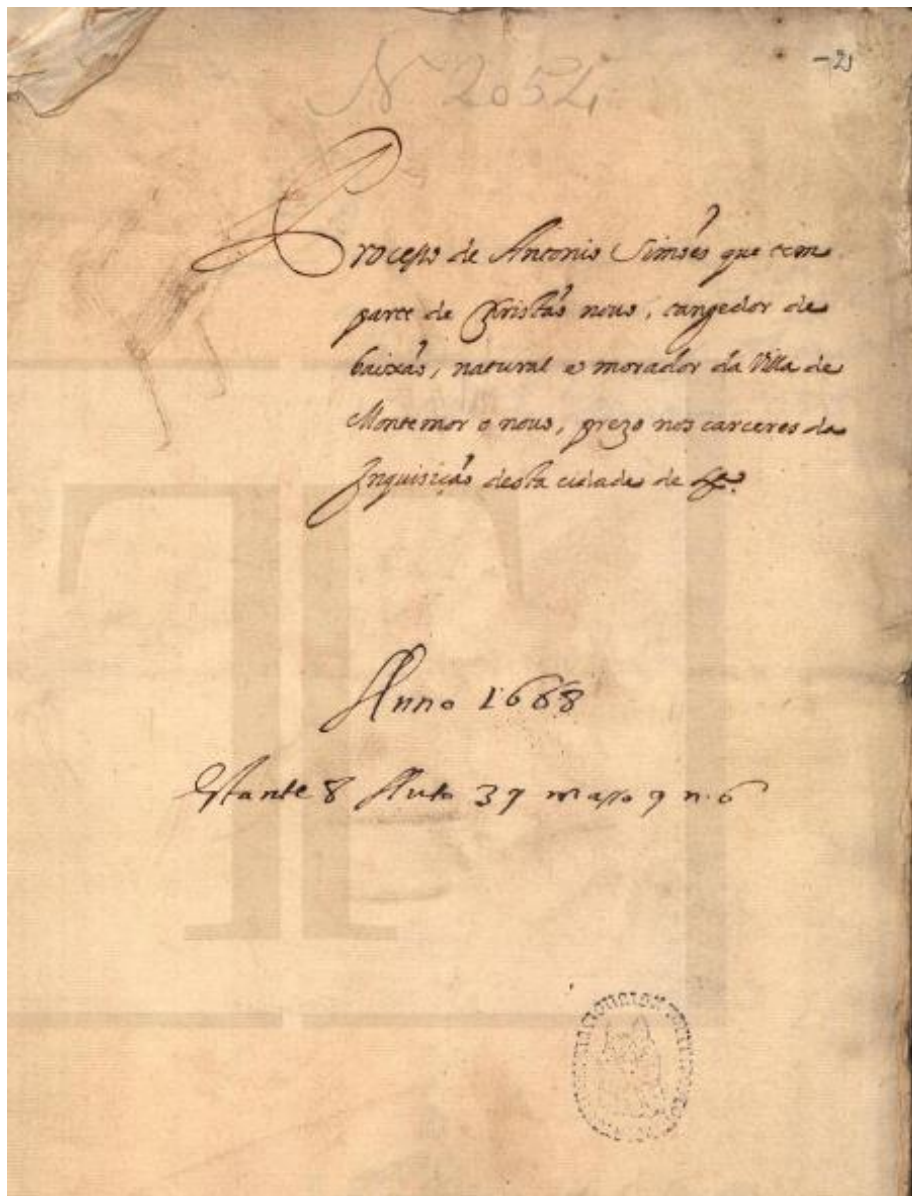 Nº 2054
-2
Processo de Antonio Simões que tem
parte de Christão novo, tangedor de
baixão, natural e morador da Villa de
Montemor o novo, prezo nos carceres da
Inquisição desta cidade de
Anno 1668
Estante 8 Auto 37 masso 7 n. 6
TT